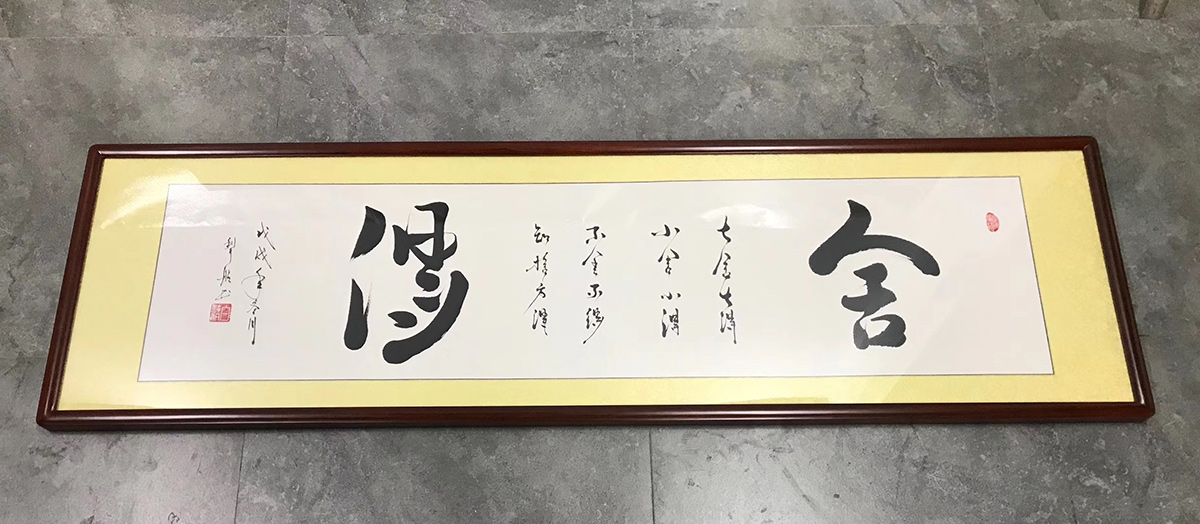 舍
大舍大得
小舍小得
不舍不得
知捨方得
得
戊戌年春月